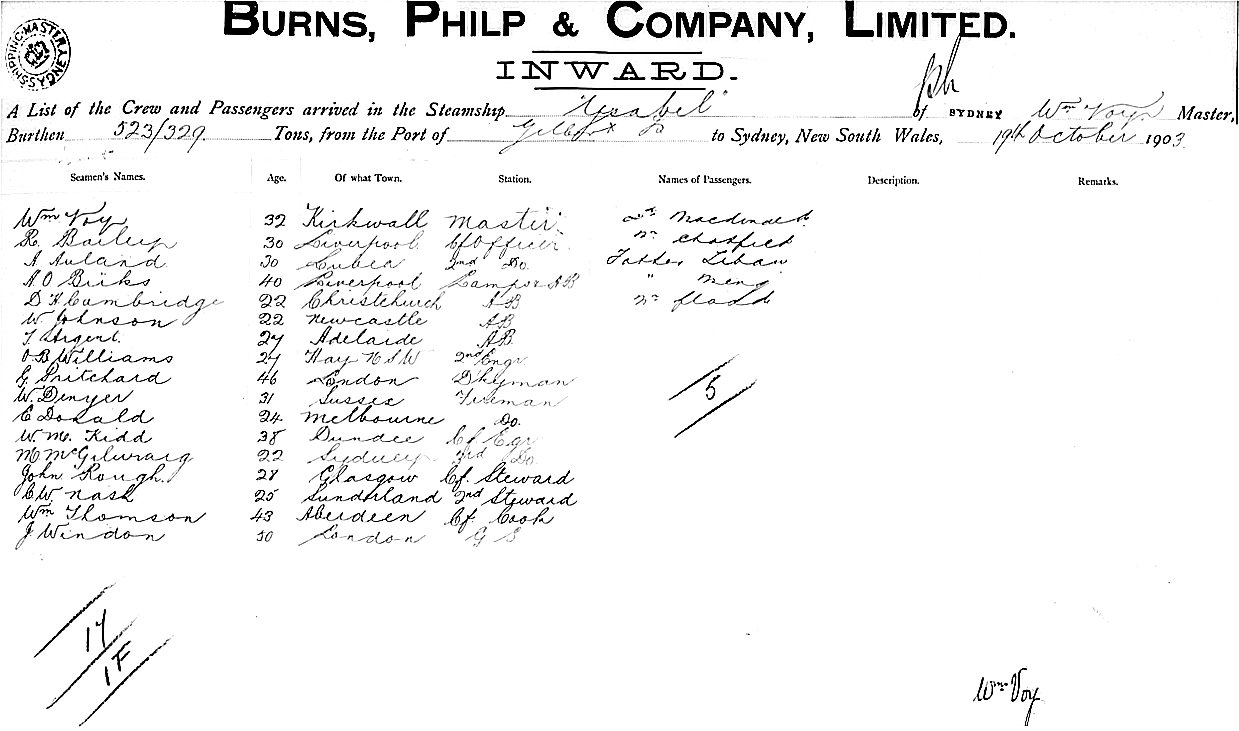 BURNS, PHILP & COMPANY, LIMITED.
INWARD.
SHIPPING MASTER SYDNEY
A List of the Crew and Passengers arrived in the Steamship "Ysabel" of SYDNEY Wm Voy Master,
Burthen 523/329 Tons, from the Port of to Sydney, New South Wales, 19th October 1903
Seamen's Names. Age. Of what Town. Station. Names of Passengers. Description. Remarks.
Wm Voy 32 Kirkwall Master Macdonald
R. Bailey 30 Liverpool Cf Officer Mr Chatfield
A Auland 30 Lubec 2nd Do. Father
A O Birks 40 Liverpool Lamps & AB "
D H Cambridge 22 Christchurch AB Mr
W Johnson 22 Newcastle AB
T Argent 27 Adelaide AB
O B Williams 27 Hay N S W 2nd Engr
G Pritchard 46 London D'keyman
W. Denyer 31 Sussex Fireman
C Donald 24 Melbourne Do.
W. M. Kidd 38 Dundee Cf Egr
M McGilvraig 22 Sydney 3rd Do
John Rough. 28 Glasgow Cf. Steward
C W Nash 25 Sunderland 2nd Steward
Wm Thomson 43 Aberdeen Cf. Cook
J Windon 30 London G S
5
17
1F
Wm Voy